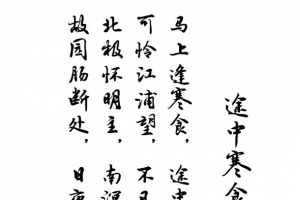 途中寒食
马上逢寒食，途中
可怜江浦望，不
北极怀明主，南溟
故园肠断处，日夜